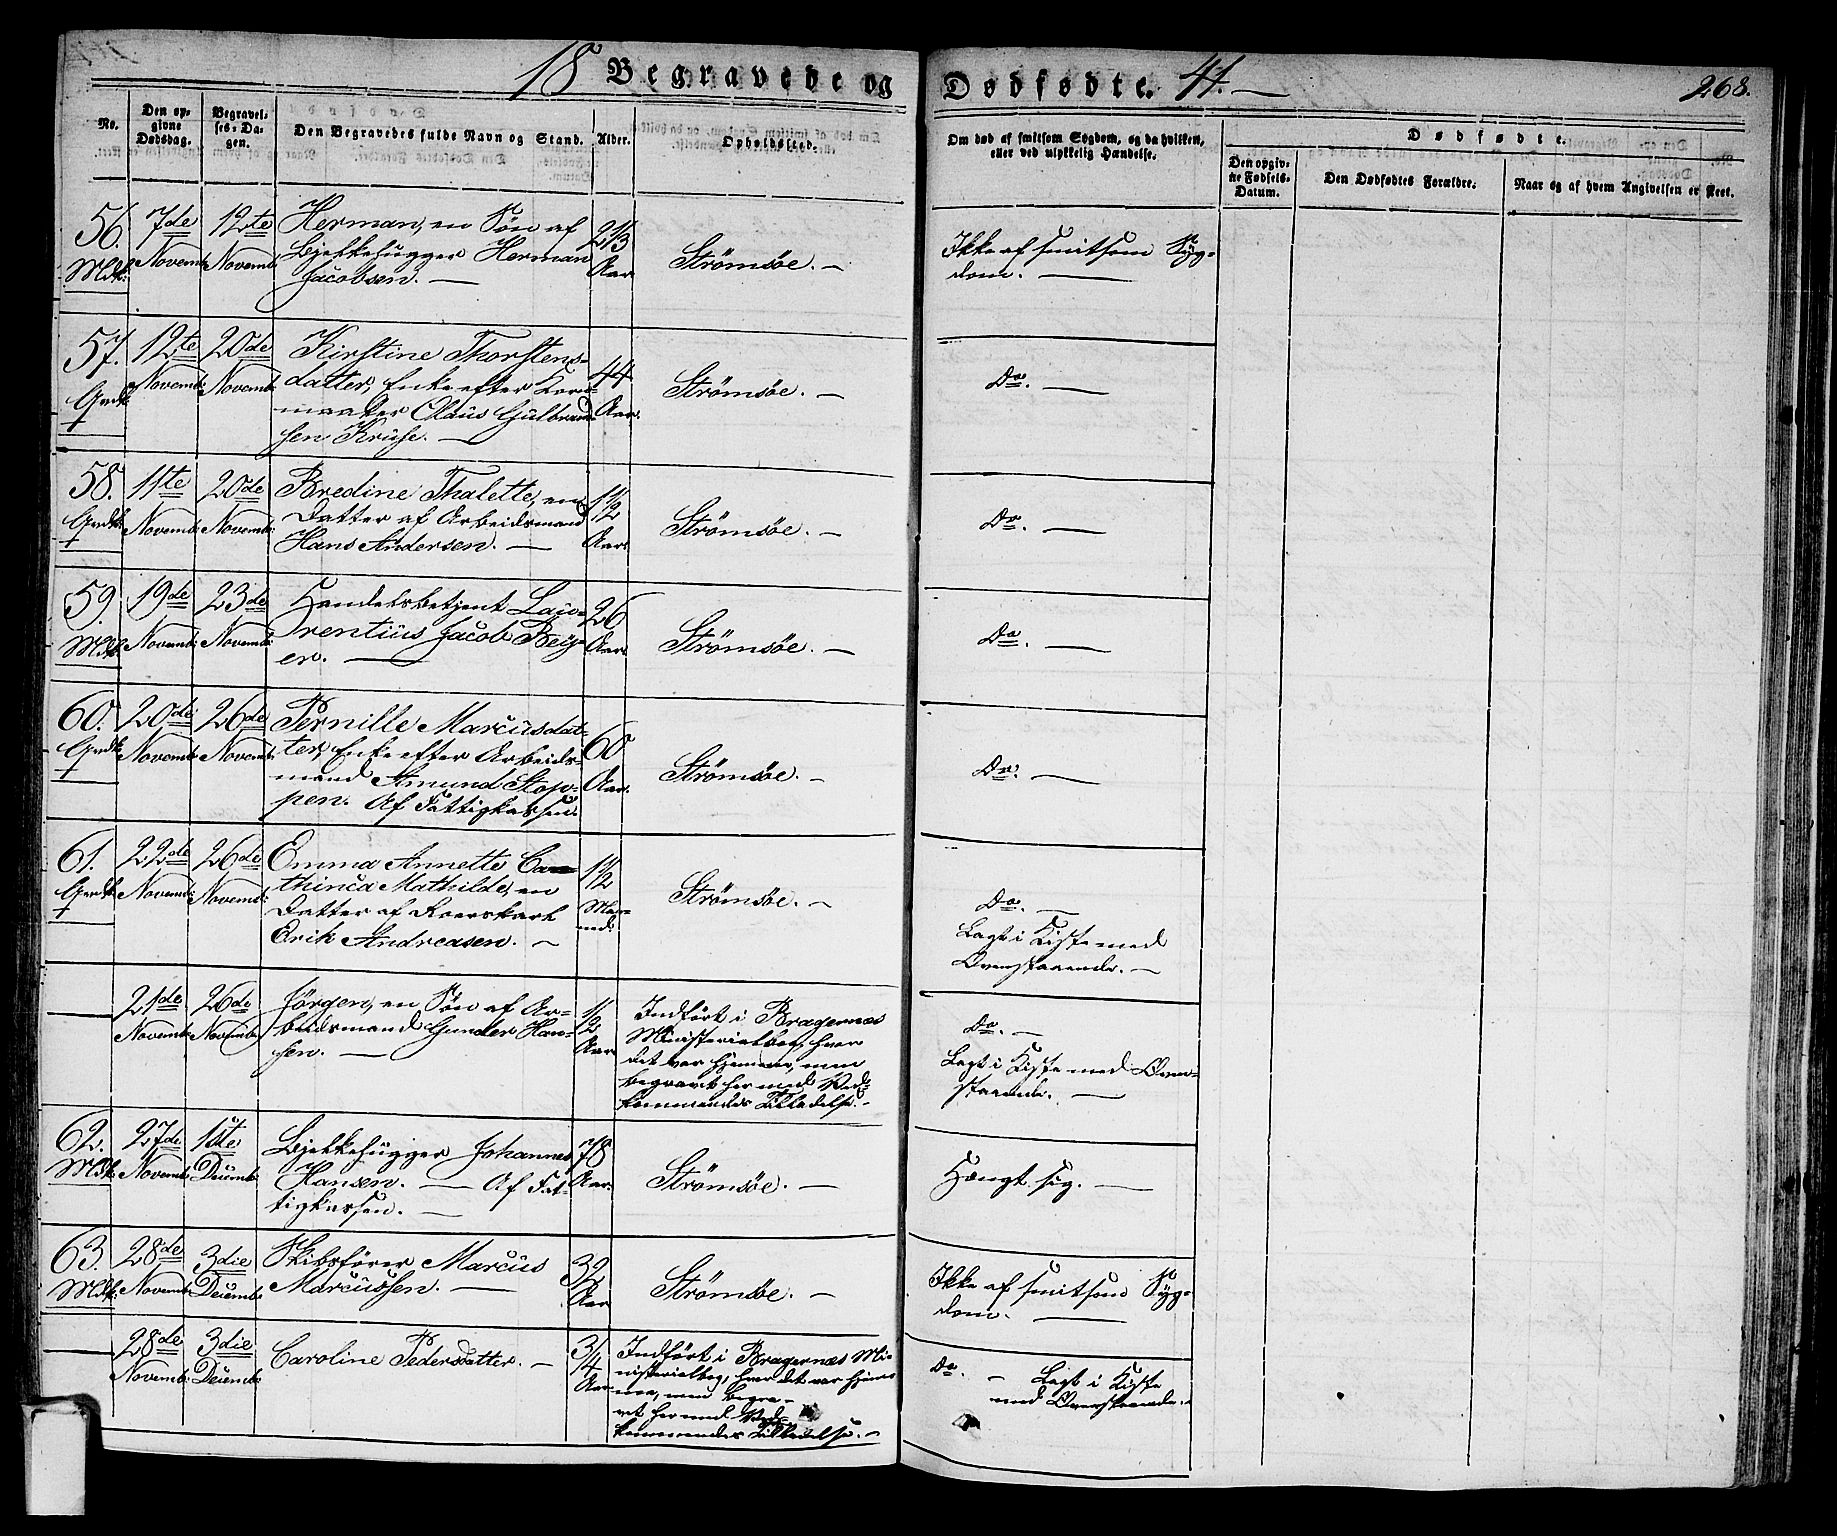 18 Begravede og Dødfødte. 41. — 268.
No.
Den op-
givne
Dødsdag.
Begravel-
ses-Da-
gen.
Den Begravedes fulde Navn og Stand.
Alder.
Opholdssted.
Om død af smitsom Sygdom, og da hvilken,
eller ved ulykkelig Hændelse.
Dødfødte.
Den opgiv-
ne Fødsels-
Datum.
Den Dødfødtes Forældre.
Naar og af hvem Angivelsen er skeet.
56.
Mdk.
7de
Novemb:
12te
Novemb:
Herman, en Søn af
Bjekkehugger Herman
Jacobsen. —
2 1/3
Aar
Strömsöe. —
Ikke af smitsom Syg-
dom. —
57.
Qvdk.
12te
Novemb:
20de
Novemb:
Kirstine Thorstens-
datter, Enke efter Korn-
maaler Olaus Gulbrand-
sen Kruse. —
44
Aar.
Strömsöe. —
Do. —
58.
Qvdk.
11te
Novemb:
20de
Novemb:
Bredine Thalette, en
Datter af Arbeidsmand
Hans Andersen. —
1 1/2
Aar.
Strömsöe. —
Do. —
59.
Mdk.
19de
Novemb:
23de
Novemb:
Handelsbetjent Lau-
rentius Jacob Bey-
er. —
26
Aar.
Strömsöe. —
Do. —
60.
Qvdk.
20de
Novemb:
26de
Novemb:
Pernille Marcusdat-
ter, Enke efter Arbeids-
mand Amund Stop-
pen. Af Fattigkassen.
60
Aar.
Strömsöe. —
Do. —
61.
Qvdk.
22de
Novemb:
26de
Novemb:
Emma Annette Ca-
thinca Mathilde, en
Datter af Roerskarl
Erik Andreasen. —
1 1/2
Maa-
ned.
Strömsöe. —
Do. —
Lagt i Kiste med
Ovenstaaende. —
21de
Novemb:
26de
Novemb:
Jörgen, en Søn af Ar-
beidsmand Gunder Han-
sen. —
1/2
Aar
Indfört i Bragernæs
Ministerialbog, hvor
det var hjemme, men
begravet her med Ved-
kommendes Tilladelse. —
Do. —
Lagt i Kiste med Oven-
staaende. —
62.
Mdk.
27de
Novemb:
1ste
Decemb:
Bjekkehugger Johannes
Hansen. — Af Fat-
tigkassen. —
78
Aar.
Strömsöe. —
Hængt sig. —
63.
Mdk.
28de
Novemb:
3die
Decemb:
Skibsförer Marcus
Marcussen. —
32
Aar
Strömsöe. —
Ikke af smitsom Syg-
dom. —
28de
Novemb:
3die
Decemb:
Caroline Pedersdatter. —
3/4
Aar
Indfört i Bragernæs Mi-
nisterialbog, hvor det var hjem-
me, men begra-
vet her med Ved-
kommendes Tilladelse. —
Do. — Lagt i Kiste
med Ovenstaaende. —